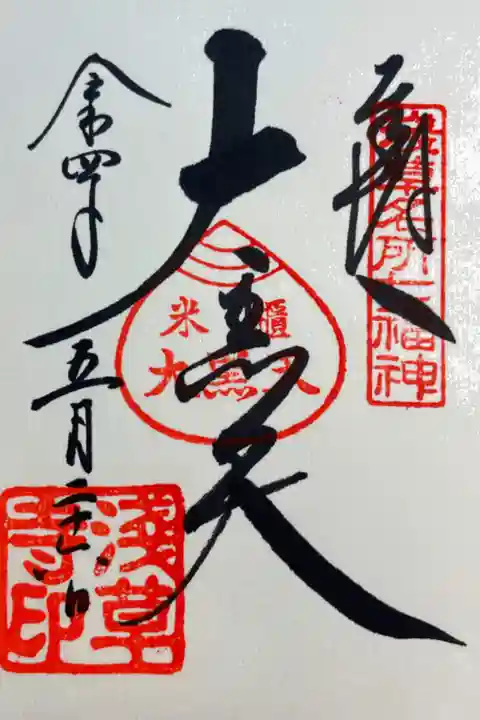 奉拝
浅草名所七福神
大黒天
米櫃
大黒天
令和四年
五月二十八日
淺草寺印